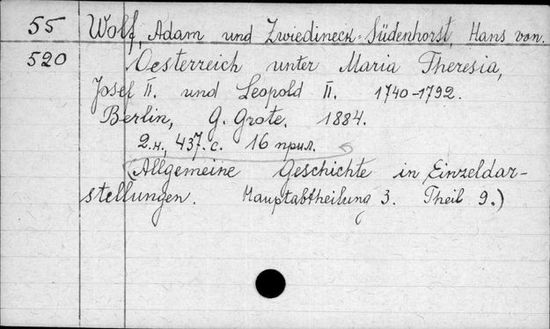 55 Wolf, Adam und Zwiedineck-Südenhorst, Hans von.
520 Oesterreich unter Maria Theresia,
Josef II. und Leopold II. 1740-1792.
Berlin, G. Grote. 1884.
2.н., 437.с. 16 прил.
(Allgemeine Geschichte in Einzeldar-
stellungen. Hauptabtheilung 3. Theil 9.)